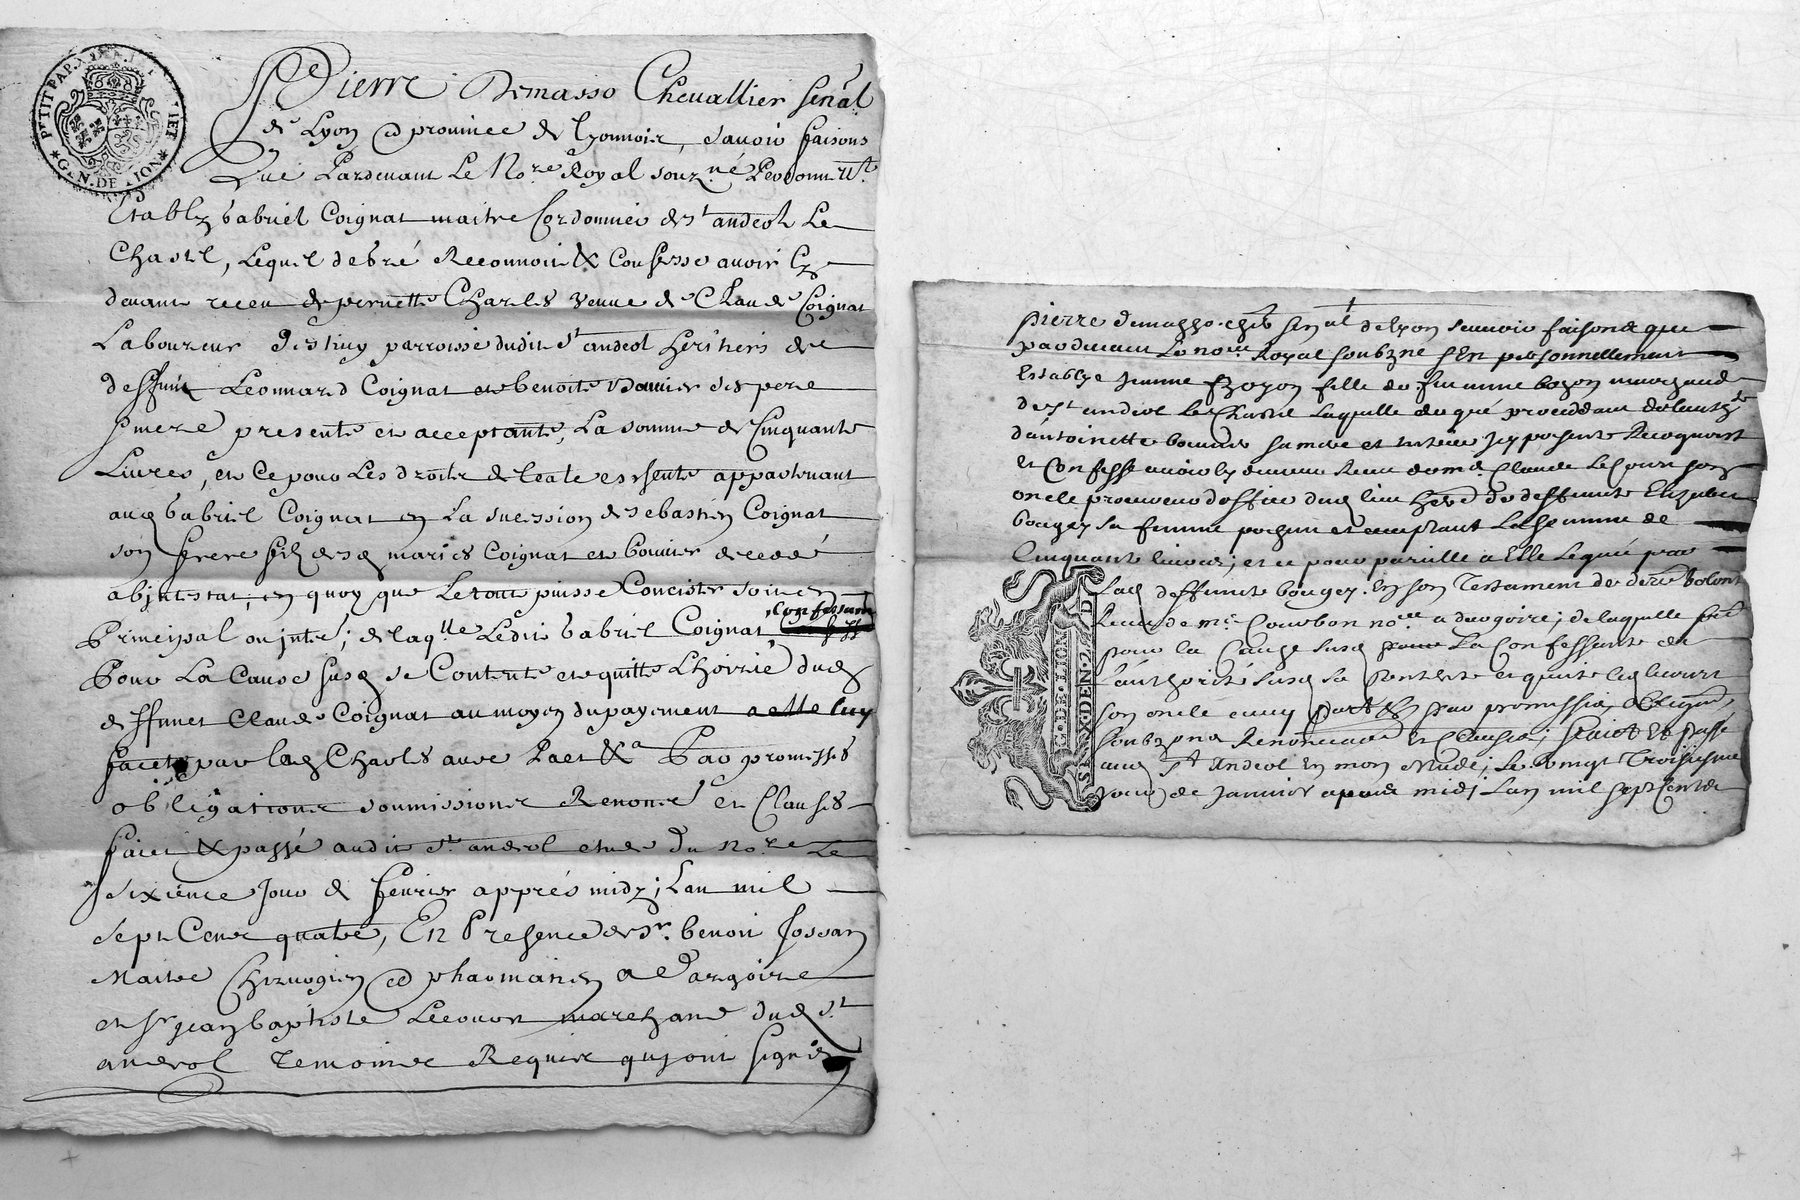 Pierre Demasso Chevallier Senal
de Lyon et province de lyonnois, scavoir faisons
Que Pardevant Le No.re Royal souz.né
Estably Gabriel Coignat maitre Cordonnier de st andeol Le
Chastel, Lequel de gré Reconnoit & Confesse avoir Cy
devant receu de pernette Charles veuve de Claude Coignat
Laboureur parroisse dudit st andeol heritiers de
deffunt Leonnard Coignat et benoite Bonnier ses pere
& mere presente et acceptante, La somme de Cinquante
Livres, et ce pour Les droits de appartenant
aud Gabriel Coignat en La sucession de sebastien Coignat
son frere filz desd maries Coignat et bonnier decedé
abjntestat, en quoy que Le tout puisse Concister soit en
Principal ou jnte; de laq.lle Ledit Gabriel Coignat, Confessant
Pour La Cause susd se Contente et quitte Lhoirie dud
deffunct Claude Coignat au moyen du payement a elle luy
faict par lad Charles avec Pact &a Par promesses
obligations soumissions Renon et Clauses
faict & passé audit st andeol etude du No.re Le
sixième Jour de fevrier apprés midy; Lan mil
sept Cent quatre, En Presence de sr. benoit Jossan
Maitre Chirurgien et pharmatien a Dargoire
et sr jean baptiste Lecourt marchand dud st
andeol Temoines Requis quy ont signé
PETIT PAP
GEN. DE LION
Pierre demasso chev Senal de lyon scavoir faisons que
pardevant Le no.re Royal soubzné s'En personnellement
Establye jeanne fille de feu marchand
de st andeol Le Chastel Laquelle de gré procedant de lauth.te
d'antoinette sa mere et tutrice jcy presente Recognoist
Et Confesse avoir cy devant Receu de m.e Claude Lecourt son
oncle procureur d'office dud lieu de deffuncte Elizabet
bouget sa femme et acceptant La somme de
Cinquante livres; et ce pour pareille a Elle Leguée par
Lad deffuncte bouget En son Testament de dere volonté
Receu de m.e Courbon no.re a dargoire; de laquelle
pour la Cause susd La Confessante de
L'authorité susd se Contente et quitte led lecourt
son oncle avec pact & par promission obligaõn
soubzmõn Renonciaõn Et Clauses; faict Et Passé
aud st Andeol En mon etude; Le vingt Troisiesme
jour de Janvier apres midj Lan mil sept Cent
G. DE. LION
SIX. DEN. 2. D